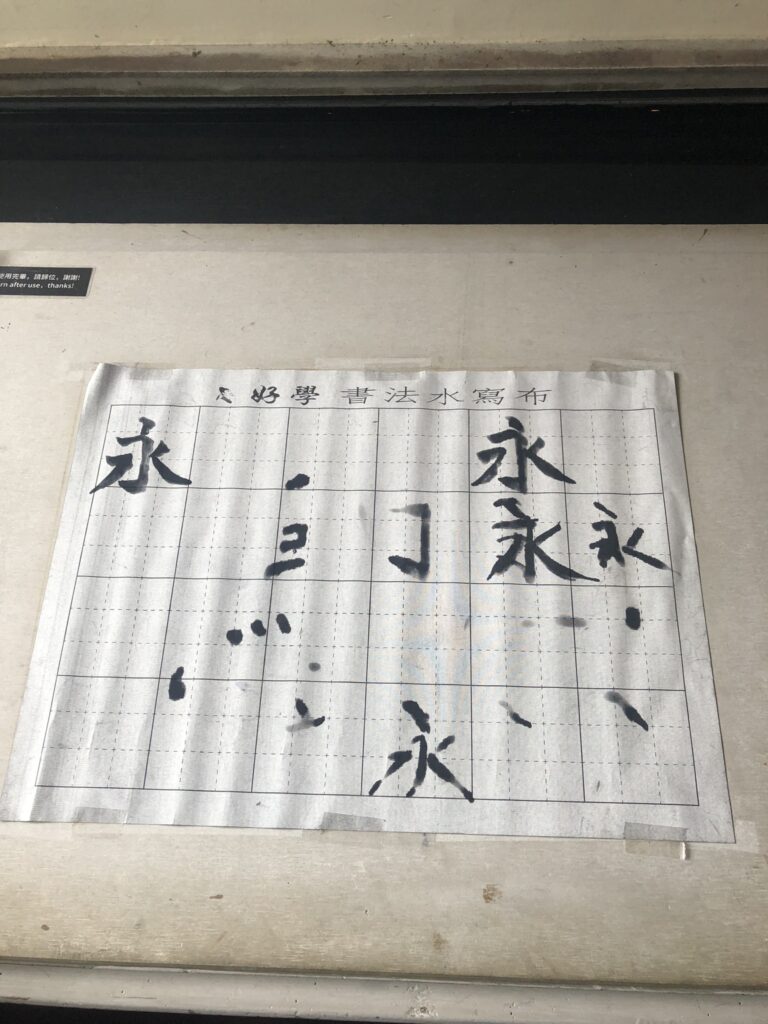 使用完畢，請歸位，謝謝!
rn after use, thanks!
好學 書法水寫布
永 永
永 永
永